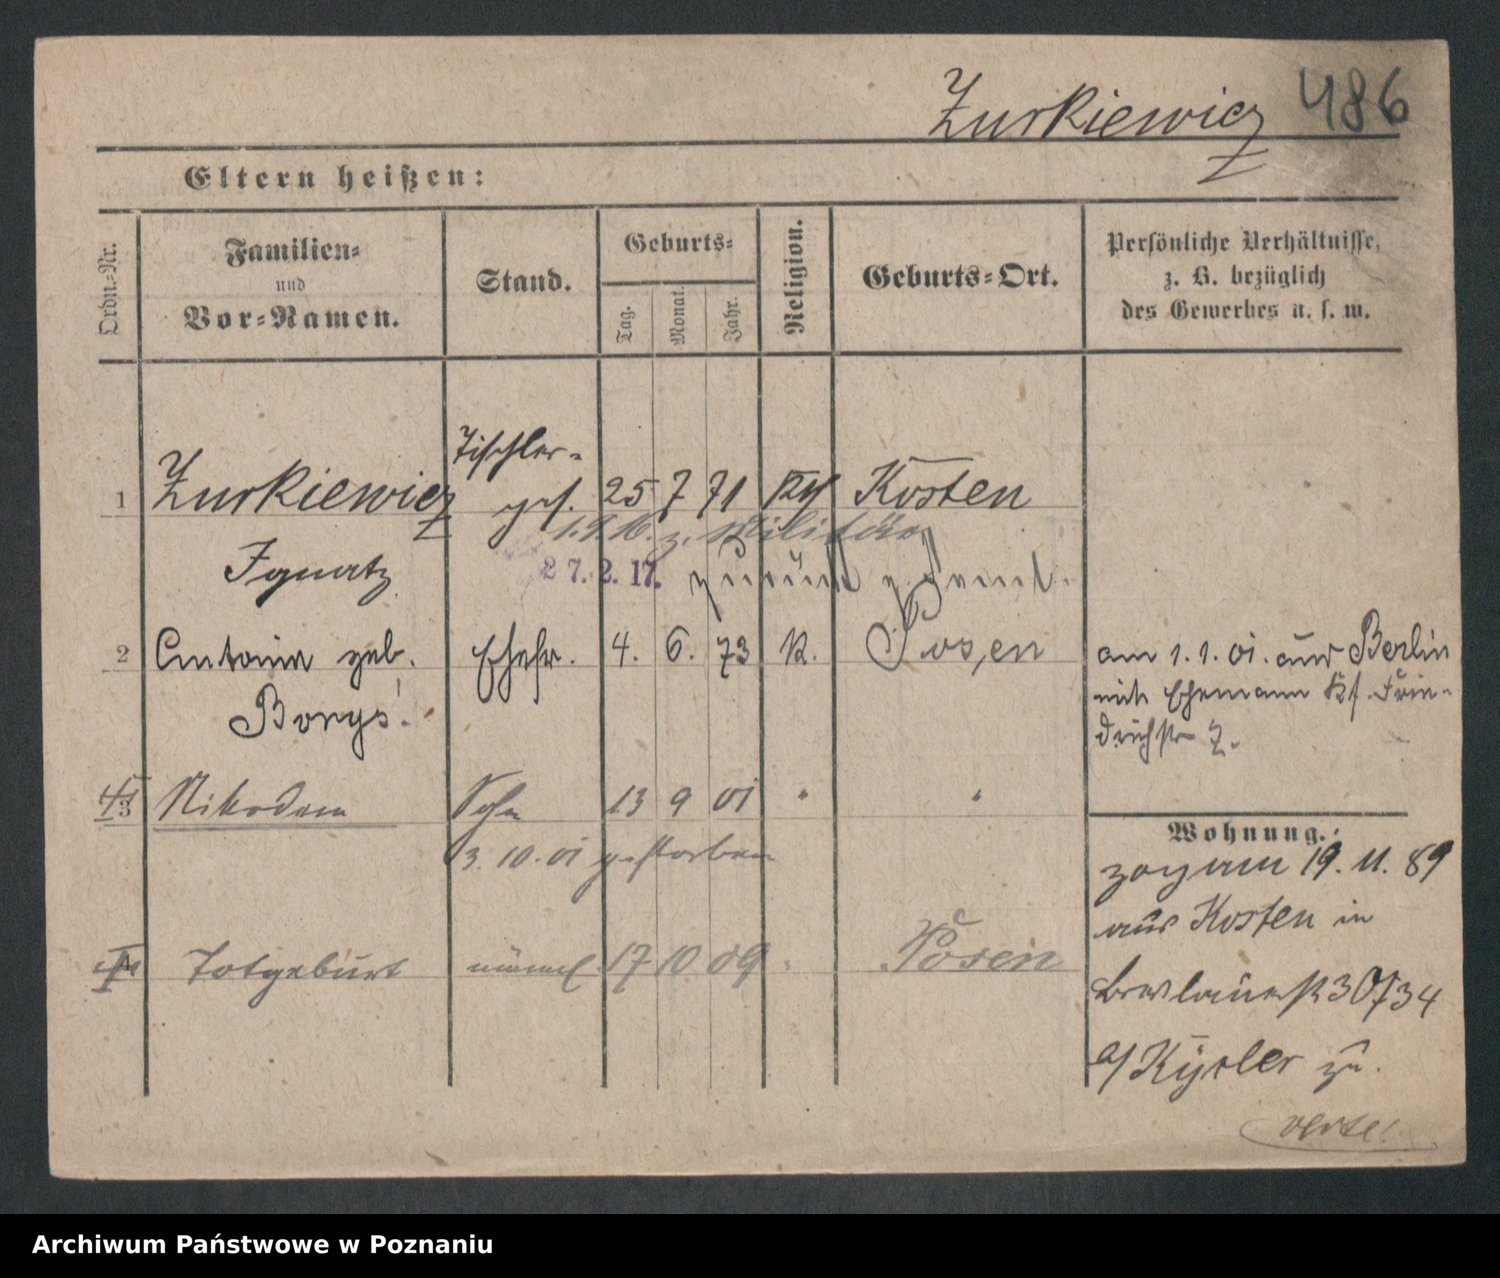 Zurkiewicz 486
Eltern heißen:
Ordn.-Nr.
Familien-
und
Vor-Namen.
Stand.
Geburts-
Tag.
Monat.
Jahr.
Religion.
Geburts-Ort.
Persönliche Verhältnisse,
z. B. bezüglich
des Gewerbes u. s. w.
Tischler-
1 Zurkiewicz ges. 25 7 71 Kth Kosten
z. Militär
Ignatz 27. 2. 17. zurück v. Service
2 Antonie geb. Ehefr. 4. 6. 73 K. Posen
Borys
am 1.1.01. aus Berlin
mit Ehemann Kf. Frie-
drichstr 2.
3 Nikodem Sohn 13 9 01 " "
3. 10. 01 gestorben
4 Totgeburt männl 17 10 09 Posen
Wohnung:
zog am 19. 11. 89
aus Kosten in
Breslauerst 30/34
a/ Kysler zu.
verte!
Archiwum Państwowe w Poznaniu